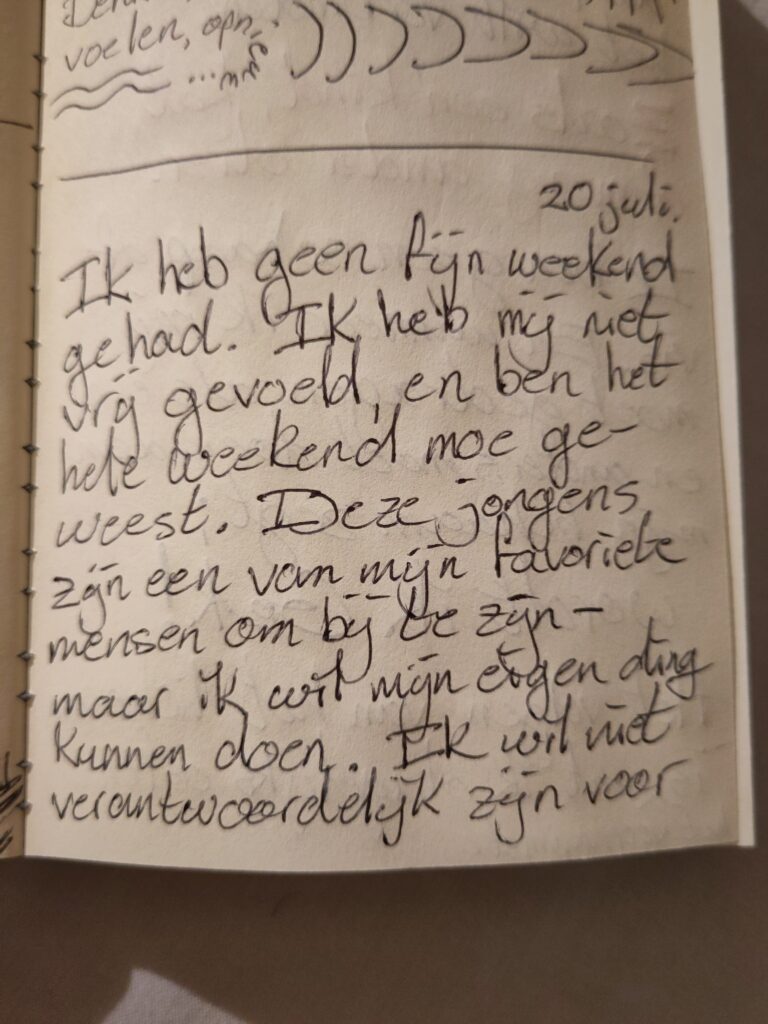 voelen, opnieuw
...
20 juli.
Ik heb geen fijn weekend
gehad. Ik heb mij niet
vrij gevoeld, en ben het
hele weekend moe ge-
weest. Deze jongens
zijn een van mijn favoriete
mensen om bij te zijn –
maar ik wil mijn eigen ding
kunnen doen. Ik wil niet
verantwoordelijk zijn voor